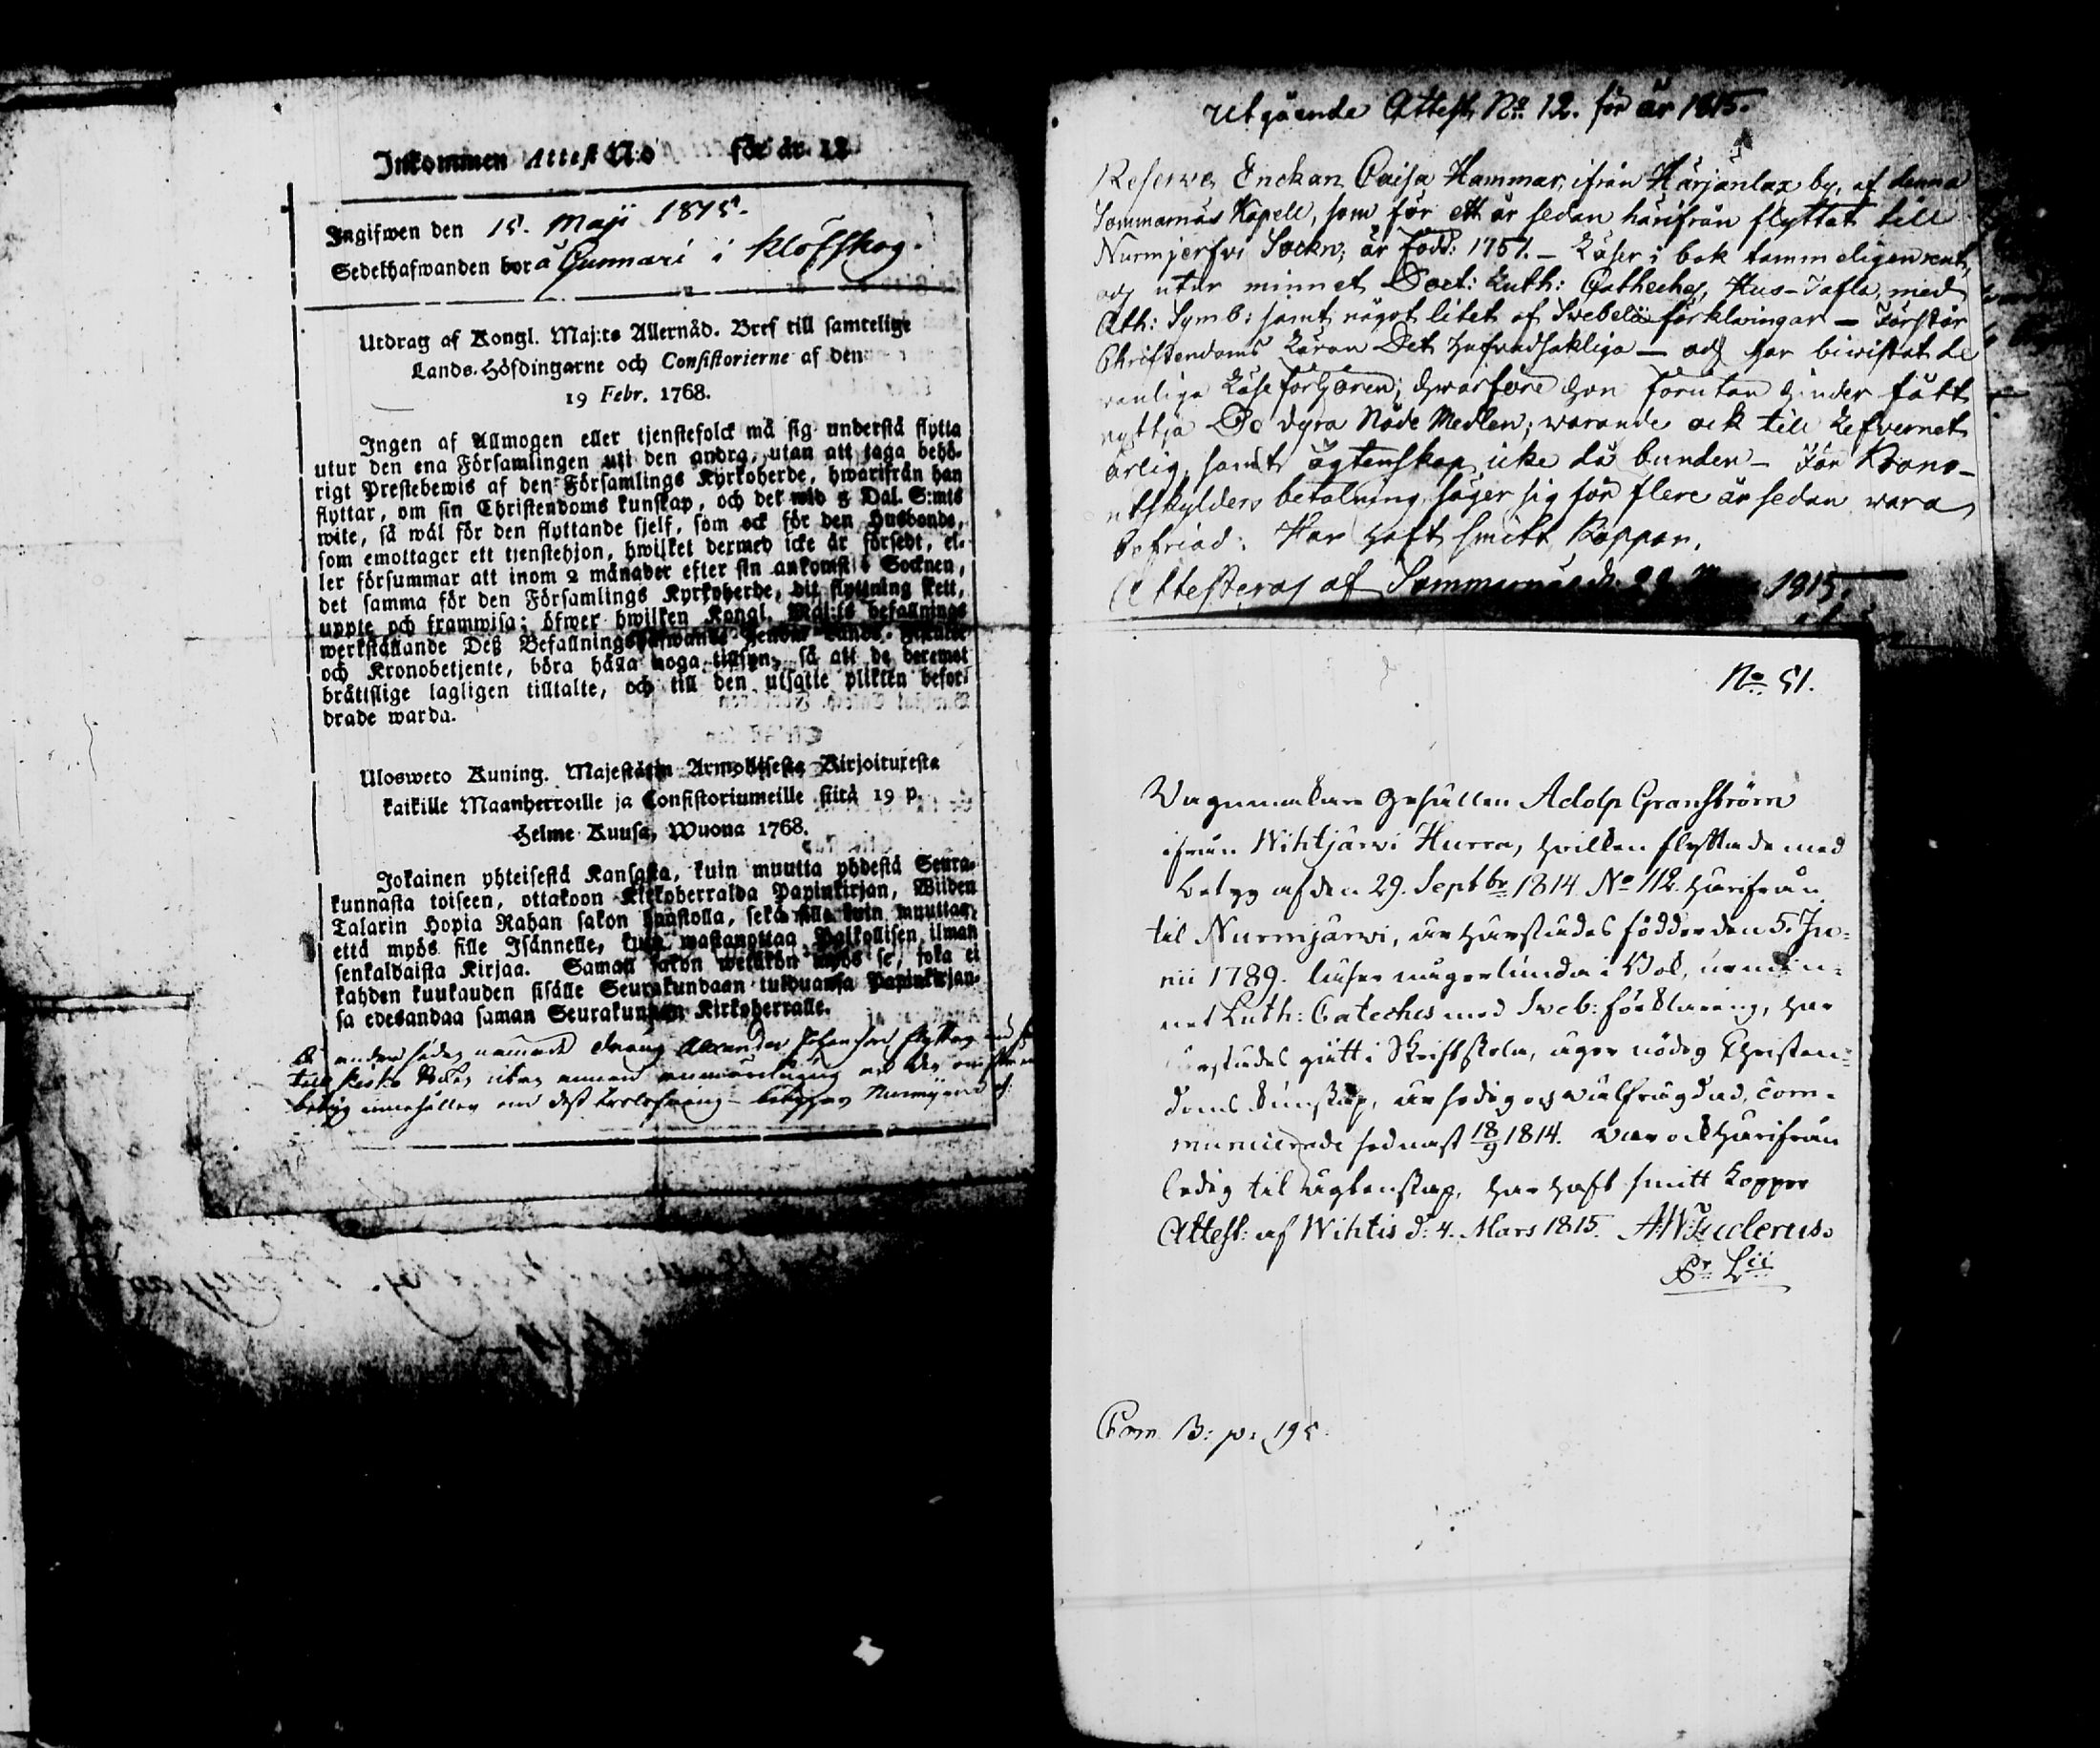 Inkommen Attest N:o för år 18
Ingifwen den 15. Maji 1815.
Sedelhafwanden bor å Gunnari i Klöfskog.
Utdrag af Kongl. Maj:ts Allernåd. Bref till samtelige
Lands-Höfdingarne och Consistorierne af den
19 Febr. 1768.
Ingen af Allmogen eller tjenstefolck må sig understå flytta
utur den ena Församlingen uti den andra, utan att taga behö-
rigt Prestebewis af den Församlings Kyrkoherde, hwarifrån han
flyttar, om sin Christendoms kunskap, och det wid 5 Dal. S:mts
wite, så wäl för den flyttande sjelf, som ock för den Husbonde,
som emottager ett tjenstehjon, hwilket dermed icke är försedt, el-
ler försummar att inom 2 månader efter sin ankomst i Socknen,
det samma för den Församlings Kyrkoherde, dit flyttning skett,
uppte och framwisa; öfwer hwilken Kongl. Maj:ts befallnings
werkställande Deß Befallningshafwande Lands-
och Kronobetjente, böra hålla noga tillsyn, så att de deremot
bråttslige lagligen tilltalte, och till den utsatte plikten befor-
drade warda.
Uloswето Kuning. Majestätin Armollisesta Kirjoituxesta
kaikille Maanherroille ja Consistoriumeille siitä 19 p.
Helme Kuusa, Wuona 1768.
Jokainen yhteisestä Kansasta, kuin muutta yhdestä Seura-
kunnasta toiseen, ottakoon Kirkoherralda Papinkirjan, Wiiden
Talarin Hopia Rahan sakon haastolla, sekä sille kuin muuttaa,
että myös sille Isännelle, kuin wastanottaa Palkollisen ilman
senkaldaista Kirjaa. Saman sakon wetäkön myös se, joka ei
kahden kuukauden sisälle Seurakundaan tulduansa Papinkirjan-
sa edesandaa saman Seurakunnan Kirkoherralle.
å andra sidan nämnde dräng Alexander Johansson flyttar
till Kisko Sokn utan annan anmärkning än den
betyg innehåller
Utgående Attest No 12. för år 1815.
Reserve Enckan Caisa Hammar, ifrån Härjänlax by, af denna
Sommarnäs Kapell, som för ett år sedan härifrån flyttat till
Nurmjerfvi Sockn; är född: 1757. – Läser i bok tämmeligen rent,
och utur minnet Doct: Luth: Catheches, Hus-Tafla, med
Ath: Symb: samt något litet af Svebelii förklaringar – Förstår
Christendoms Läran Det hufvudsakliga – och har biwistat de
vanliga Läseförhören; hwarföre hon förutan hinder fått
nyttja De dyra Nåde Medlen; warande ock till Lefvernet
ärlig, samt ägtenskap icke då bunden – För Krono-
utskylders betalning, säger sig för flere år sedan wara
befriad. Har haft smitt Koppor.
Attesteras af Sommarnäs d. 22 1815.
No 51.
Vagnmakare Gesällen Adolp Granström
ifrån Wihtjärwi Hurra, hvilken flyttade med
betyg af den 29. Septbr 1814. No 112. härifrån
til Nurmijärwi, är härstädes födder den 5. Ju-
nii 1789. läser någorlunda i Bok, ur min-
net Luth: Cateches med Sveb: förklaring, har
härstädes gått i Skriftskola, äger nödig Christen-
doms kunskap, är hedig och wälfrägdad, com-
municerade sednast 18/9 1814. War ock härifrån
ledig til ägtenskap, har haft smitt koppor
Attest: af Wihtis d: 4. Mars 1815. A:W:Fuclerus.
Pr Lii
Com. B: p: 195.